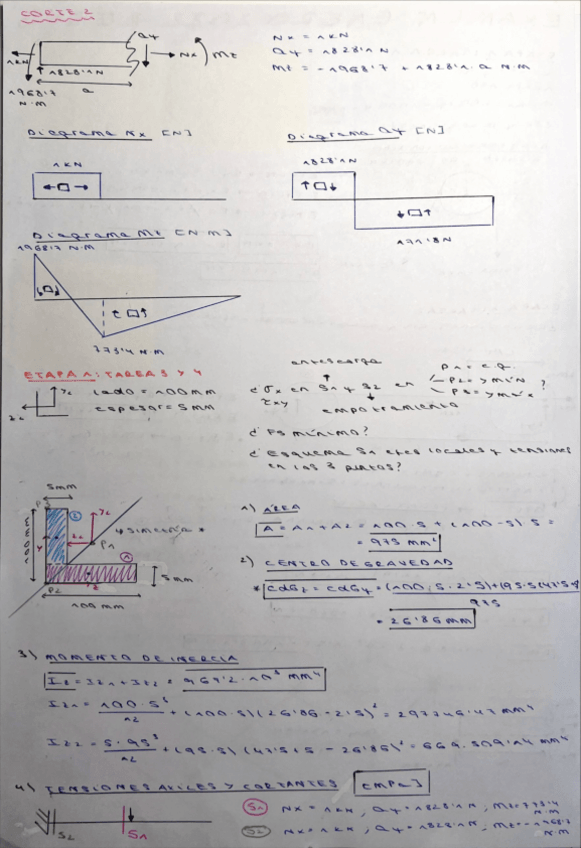 CORTE 2
Qy
Nx
Mt
1KN
1828'1N
1968'7
N·M
a
Nx = 1KN
Qy = 1828'1N
Mt = -1968'7 + 1828'1·a N·M
Diagrama Nx [N]
Diagrama Qy [N]
1KN
1828'1N
171'8N
Diagrama Mt [N·M]
1968'7 N·M
773'4 N·M
ETAPA 1: TAREAS 3 y 4
lado = 100mm
espesor = 5mm
antescarga
P1 = c.g.
¿σx en S1 y S2 en P2 = ymín ?
τxy P3 = ymáx
empotramiento
¿Fs mínimo?
¿Esquema S1 ejes locales y tensiones
en los 3 puntos?
5mm
100mm
P1
P2
y simetría *
5mm
100mm
1) ÁREA
A = A1 + A2 = 100·5 + (100-5)·5 =
= 975 mm²
2) CENTRO DE GRAVEDAD
* cdgz = cdgy = (100·5·2'5)+(95·5(47'5+5
975
= 26'86 mm
3) MOMENTO DE INERCIA
Iz = Iz1 + Iz2 = 964'2·10³ mm⁴
Iz1 = 100·5³/12 + (100·5)(26'86-2'5)² = 297746'47 mm⁴
Iz2 = 5·95³/12 + (95·5)(47'5+5 - 26'86)² = 669.509'14 mm⁴
4) TENSIONES AXILES Y CORTANTES [MPa]
S2
S1
S1 Nx = 1KN, Qy = 1828'1N, Mt = 773'4
N·M
S2 Nx = 1KN, Qy = 1828'1N, Mt = -1968'7
N·M